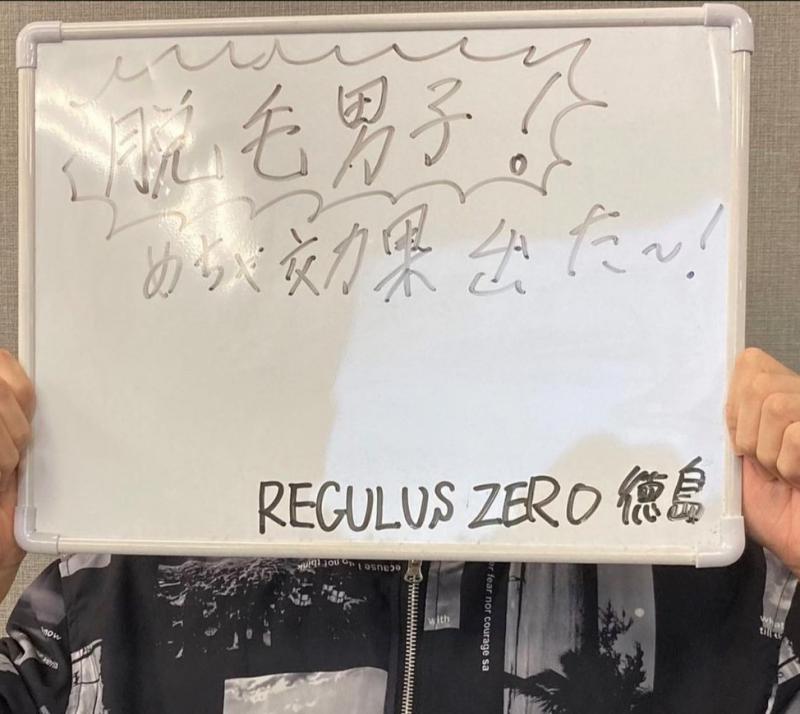 脱毛男子!
めちゃ効果出た〜!
REGULUS ZERO 徳島
ecause I do not think
with
or fear nor courage sa
know
what
till th